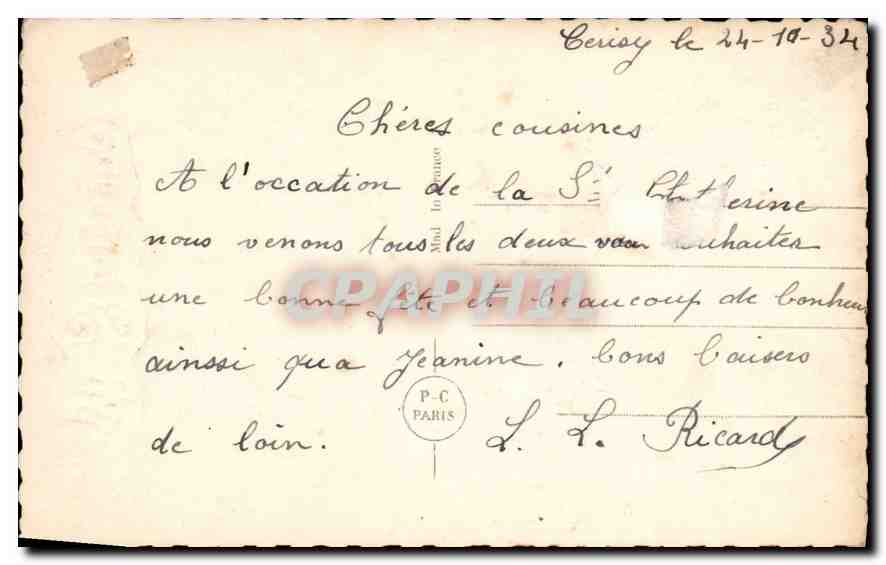 Cerisy le 24-10-34
Chéres cousines
A l'occation de la Ste Catherine
nous venons tous les deux vous souhaiter
une bonne fête et beaucoup de bonheur
ainssi qua Jeanine. bons baisers
de loin. L. L. Ricard
Mad In France
P-C
PARIS
CPAPHIL